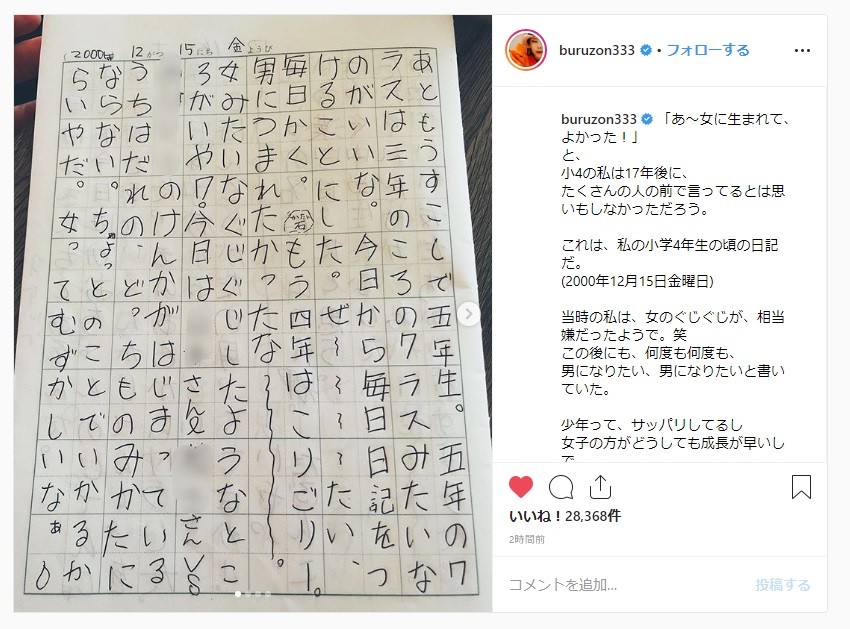 2000年 12がつ 15にち 金ようび
あともうすこしで五年生。五年のク
ラスは三年のころのクラスみたいな
のがいいな。今日から毎日日記をつ
けることにした。ぜ〜〜〜〜たい、
毎日かく。もう四年はこりごりー。
男にうまれたかったな〜〜。
女みたいなぐじぐじしたようなとこ
ろがいや!?。今日はさんとさんVS
のけんかがはじまっている
うちはだれの、どっちものみかたに
ならない。ちょっとのことでいかるか
らいやだ。女ってむずかしいなぁ♪
buruzon333 • フォローする
buruzon333 「あ〜女に生まれて、
よかった！」
と、
小4の私は17年後に、
たくさんの人の前で言ってるとは思
いもしなかっただろう。
これは、私の小学4年生の頃の日記
だ。
(2000年12月15日金曜日)
当時の私は、女のぐじぐじが、相当
嫌だったようで。笑
この後にも、何度も何度も、
男になりたい、男になりたいと書い
ていた。
少年って、サッパリしてるし
女子の方がどうしても成長が早いし
で
いいね！28,368件
2時間前
コメントを追加...
投稿する